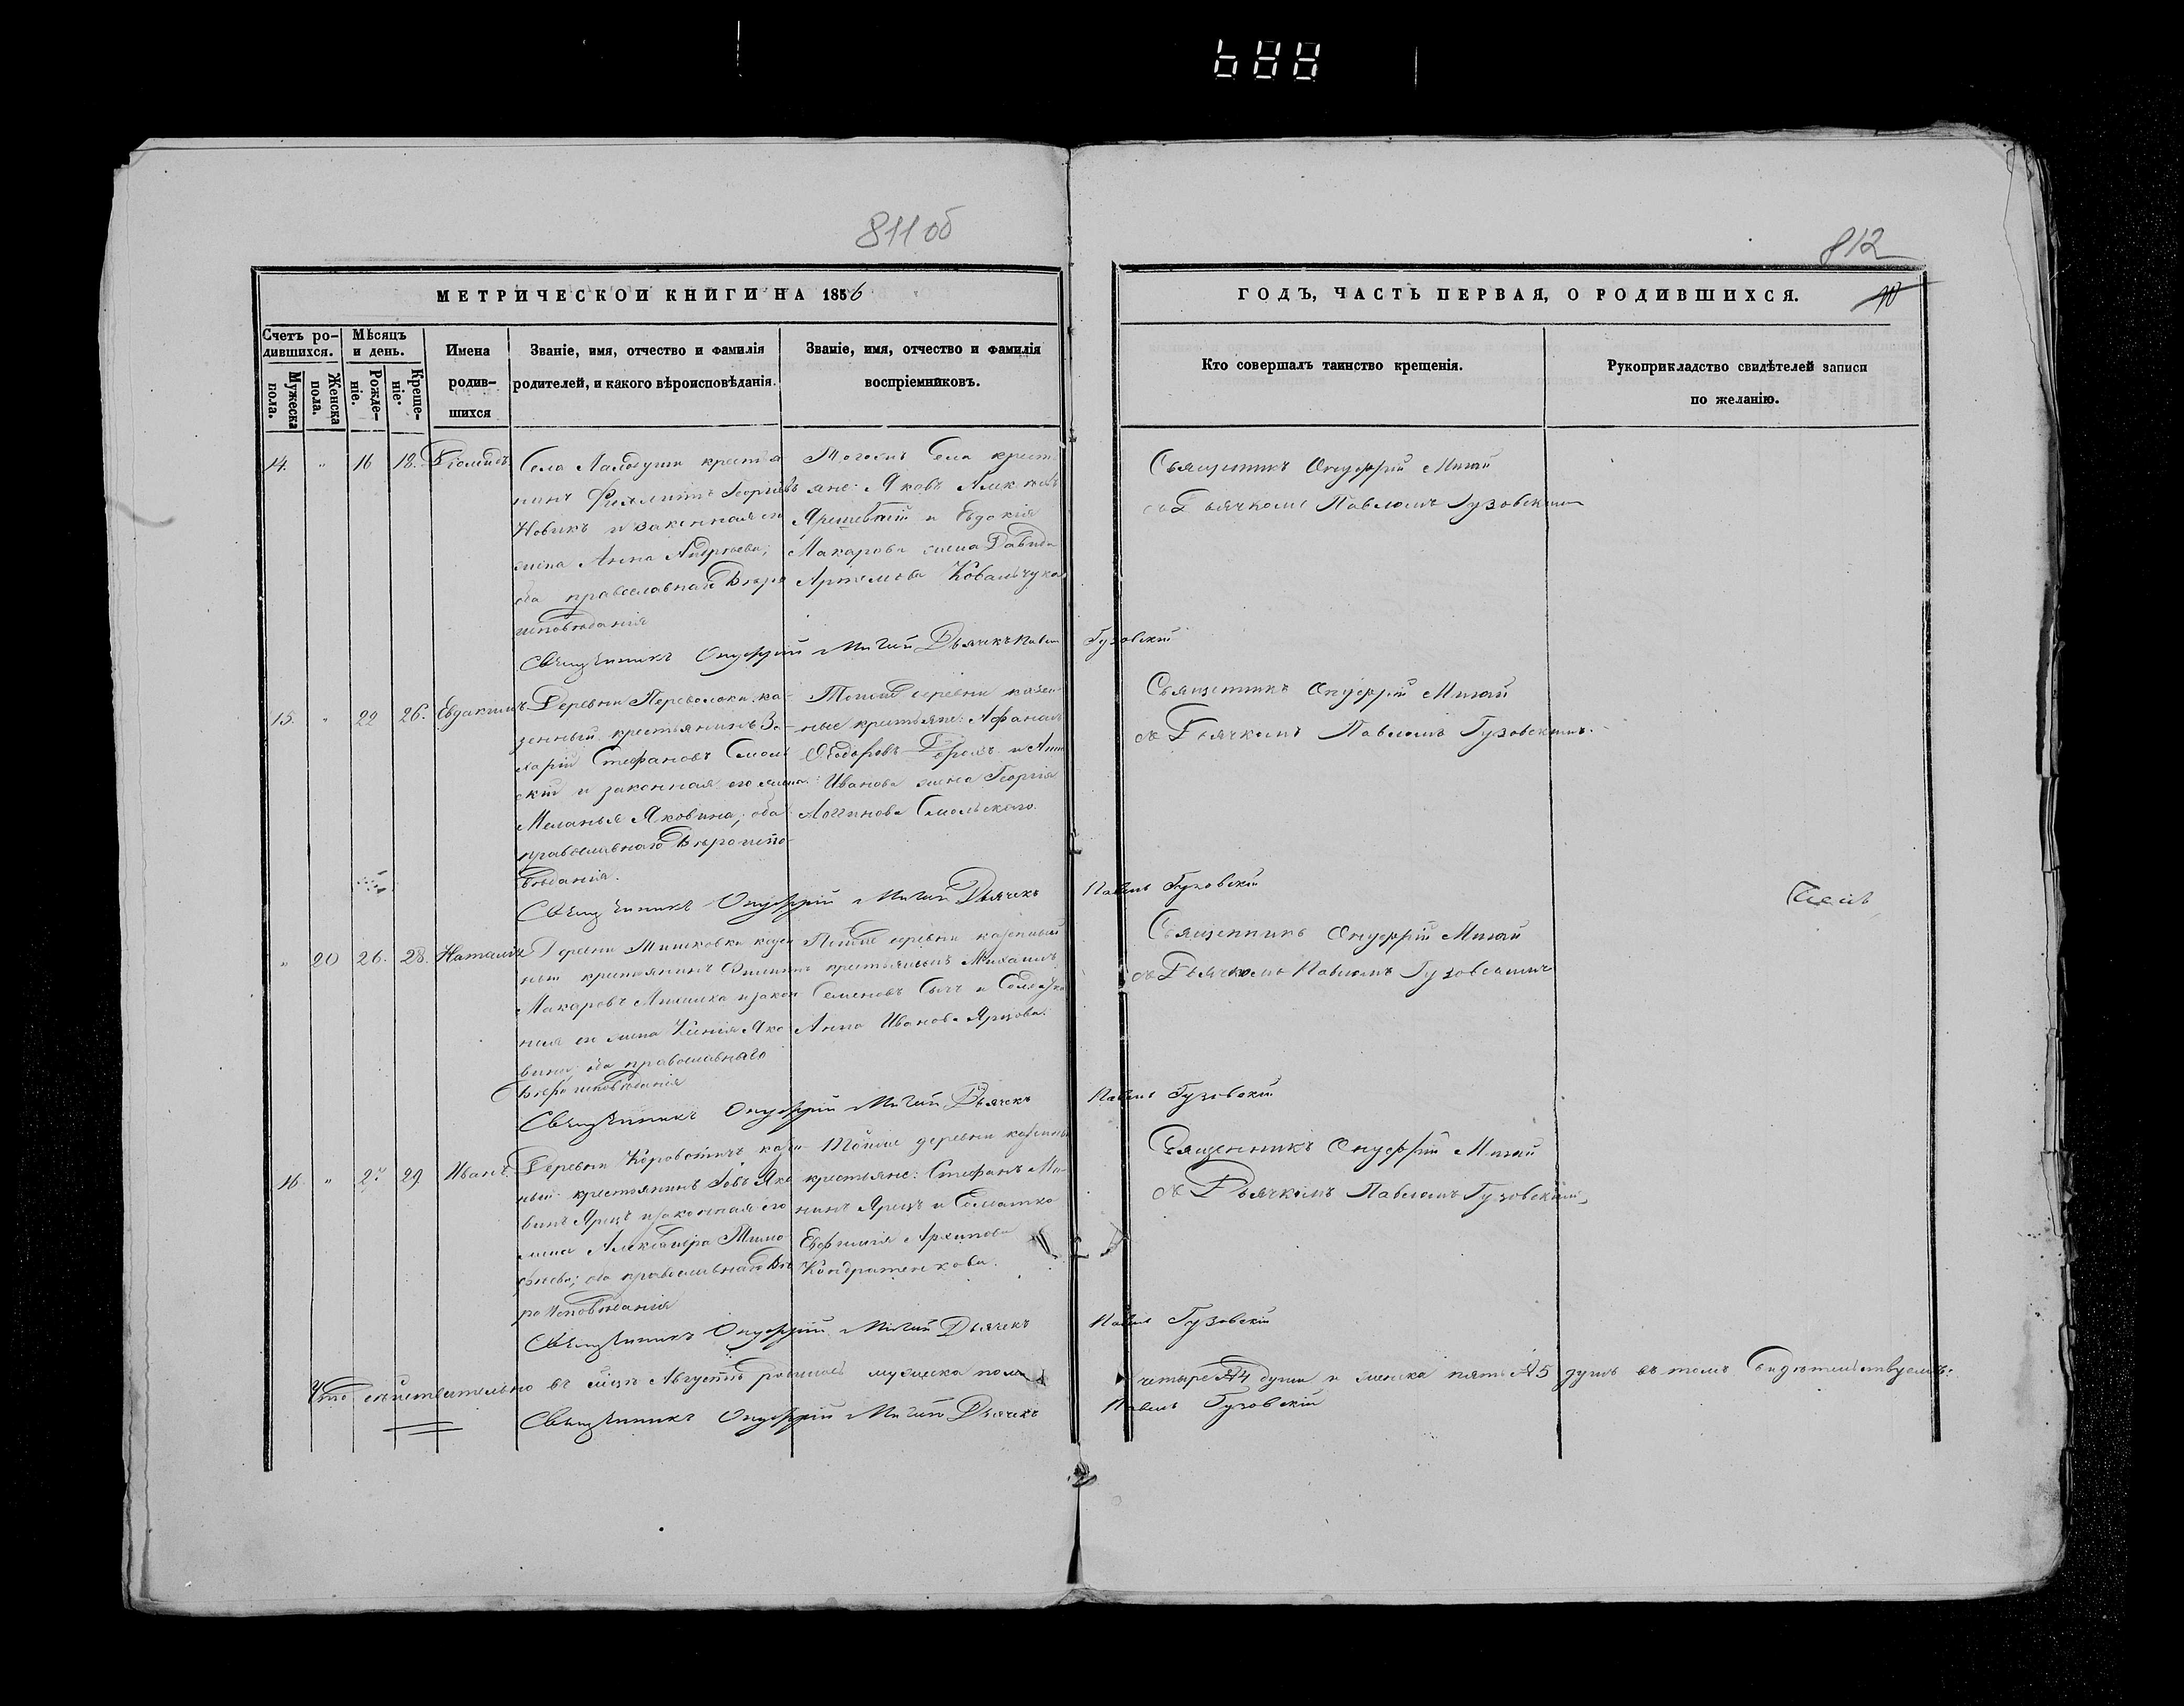 811 об
812
МЕТРИЧЕСКОЙ КНИГИ НА 1856
ГОДЪ, ЧАСТЬ ПЕРВАЯ, О РОДИВШИХСЯ.
10
Счетъ родившихся.
Мужеска пола.
Женска пола.
Мѣсяцъ и день.
Рожденіе.
Крещеніе.
Имена родившихся
Званіе, имя, отчество и фамилія
родителей, и какого вѣроисповѣданія.
Званіе, имя, отчество и фамилія
воспріемниковъ.
Кто совершалъ таинство крещенія.
Рукоприкладство свидѣтелей записи
по желанію.
14. " 16 18.
Села крестья
нинъ Георгіевъ
Новикъ и законная его
жена Анна Андреева;
оба православнаго вѣро
исповѣданія
Тогожъ Села кресть
яне: Яковъ
и Евдокія
Макарова жена Давида
Артемова Ковальчука
Священникъ Онуфрій Мигай
съ Дьячкомъ Павломъ Гузовскимъ
Священникъ Онуфрій Мигай Дьячекъ Павелъ Гузовскій
15. " 22 26. Евдакимъ
Деревни Переволоки ка
зенный крестьянинъ За
харій Стефановъ Смоль
скій и законная его жена
Меланья Яковина; оба
православнаго вѣроиспо
вѣданія.
Тойже деревни казен
ные крестьяне: Афанасъ
Ѳеодоровъ и Анна
Иванова жена Георгія
Логинова Смольскаго.
Священникъ Онуфрій Мигай
съ Дьячкомъ Павломъ Гузовскимъ.
Священникъ Онуфрій Мигай Дьячекъ Павелъ Гузовскій
" 20 26. 28. Наталія
Деревни Мишковки казен
ный крестьянинъ Филиппъ
Макаровъ и закон
ная его жена Ксенія Яко
вина; оба православнаго
вѣроисповѣданія
Тойже деревни казенный
крестьянинъ Михаилъ
Семеновъ Сычъ и Солдатка
Анна Иванова Ярцова.
Священникъ Онуфрій Мигай
съ Дьячкомъ Павломъ Гузовскимъ
Священникъ Онуфрій Мигай Дьячекъ Павелъ Гузовскій
16 " 29 Иванъ
Деревни казен
ный крестьянинъ Іовъ Яко
винъ Ярецъ и законная его
жена Александра Тимо
фиева; оба православнаго вѣ
роисповѣданія
Тойже деревни казенные
крестьяне: Стефанъ
Ярецъ и Солдатка
Евфимія Архипова
Кондратенкова.
Священникъ Онуфрій Мигай
съ Дьячкомъ Павломъ Гузовскимъ
Священникъ Онуфрій Мигай Дьячекъ Павелъ Гузовскій
Что дѣйствительно въ Августѣ родилось мужеска пола четыре 4 души и женска пять 5 душъ въ томъ свидѣтельствуемъ:
Священникъ Онуфрій Мигай Дьячекъ Павелъ Гузовскій